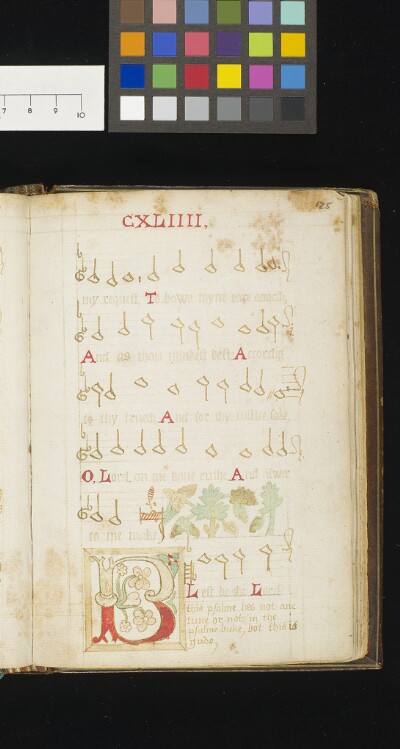 7 8 9 10
125
CXLIIII,
my request, To bowe thyne eare
And as thou thinkest best, Accordig
to thy trueth, And for thy iustice sake
O, Lord, on me haue ruthe, And
to me make
Blest be the Lord
this psalme hes not ane
tune or note in the
psalme buke, bot this is
gude,